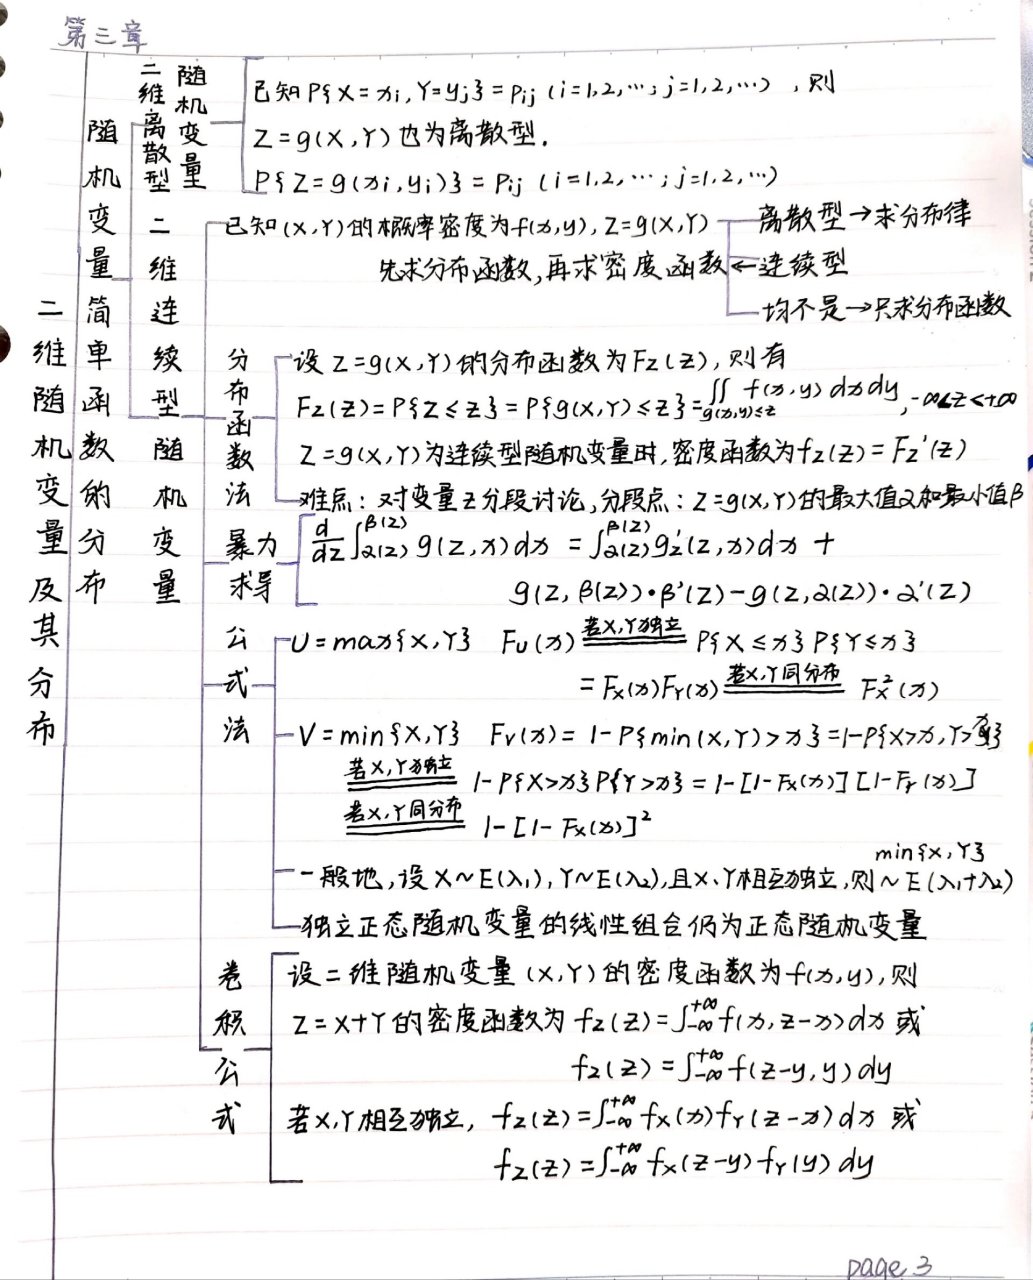 第三章
二维随机变量及其分布
随机变量简单函数的分布
二维离散型
随机变量
已知P{X=xi,Y=yj}=pij (i=1,2,⋯;j=1,2,⋯),则
Z=g(X,Y)也为离散型.
P{Z=g(xi,yi)}=pij (i=1,2,⋯;j=1,2,⋯)
二维连续型随机变量
已知(X,Y)的概率密度为f(x,y),Z=g(X,Y)
离散型→求分布律
先求分布函数,再求密度函数←连续型
均不是→只求分布函数
分布函数法
设Z=g(X,Y)的分布函数为Fz(z),则有
Fz(z)=P{Z≤z}=P{g(X,Y)≤z}=∬g(x,y)≤z f(x,y)dxdy,-∞<z<+∞
Z=g(X,Y)为连续型随机变量时,密度函数为fz(z)=Fz'(z)
难点:对变量z分段讨论,分段点:Z=g(X,Y)的最大值α和最小值β
暴力求导
d/dz ∫α(z)^β(z) g(z,x)dx = ∫α(z)^β(z) gz'(z,x)dx +
g(z,β(z))·β'(z)-g(z,α(z))·α'(z)
公式法
U=max{X,Y} Fu(x) 若X,Y独立 P{X≤x}P{Y≤x}
=Fx(x)FY(x) 若X,Y同分布 Fx²(x)
V=min{X,Y} Fv(x)=1-P{min(X,Y)>x}=1-P{X>x,Y>x}
若X,Y独立 1-P{X>x}P{Y>x}=1-[1-Fx(x)][1-FY(x)]
若X,Y同分布 1-[1-Fx(x)]²
min{X,Y}
一般地,设X~E(λ1),Y~E(λ2),且X、Y相互独立,则~E(λ1+λ2)
独立正态随机变量的线性组合仍为正态随机变量
卷积公式
设二维随机变量(X,Y)的密度函数为f(x,y),则
Z=X+Y的密度函数为fz(z)=∫-∞^+∞ f(x,z-x)dx或
fz(z)=∫-∞^+∞ f(z-y,y)dy
若X,Y相互独立,fz(z)=∫-∞^+∞ fX(x)fY(z-x)dx或
fz(z)=∫-∞^+∞ fX(z-y)fY(y)dy
page 3